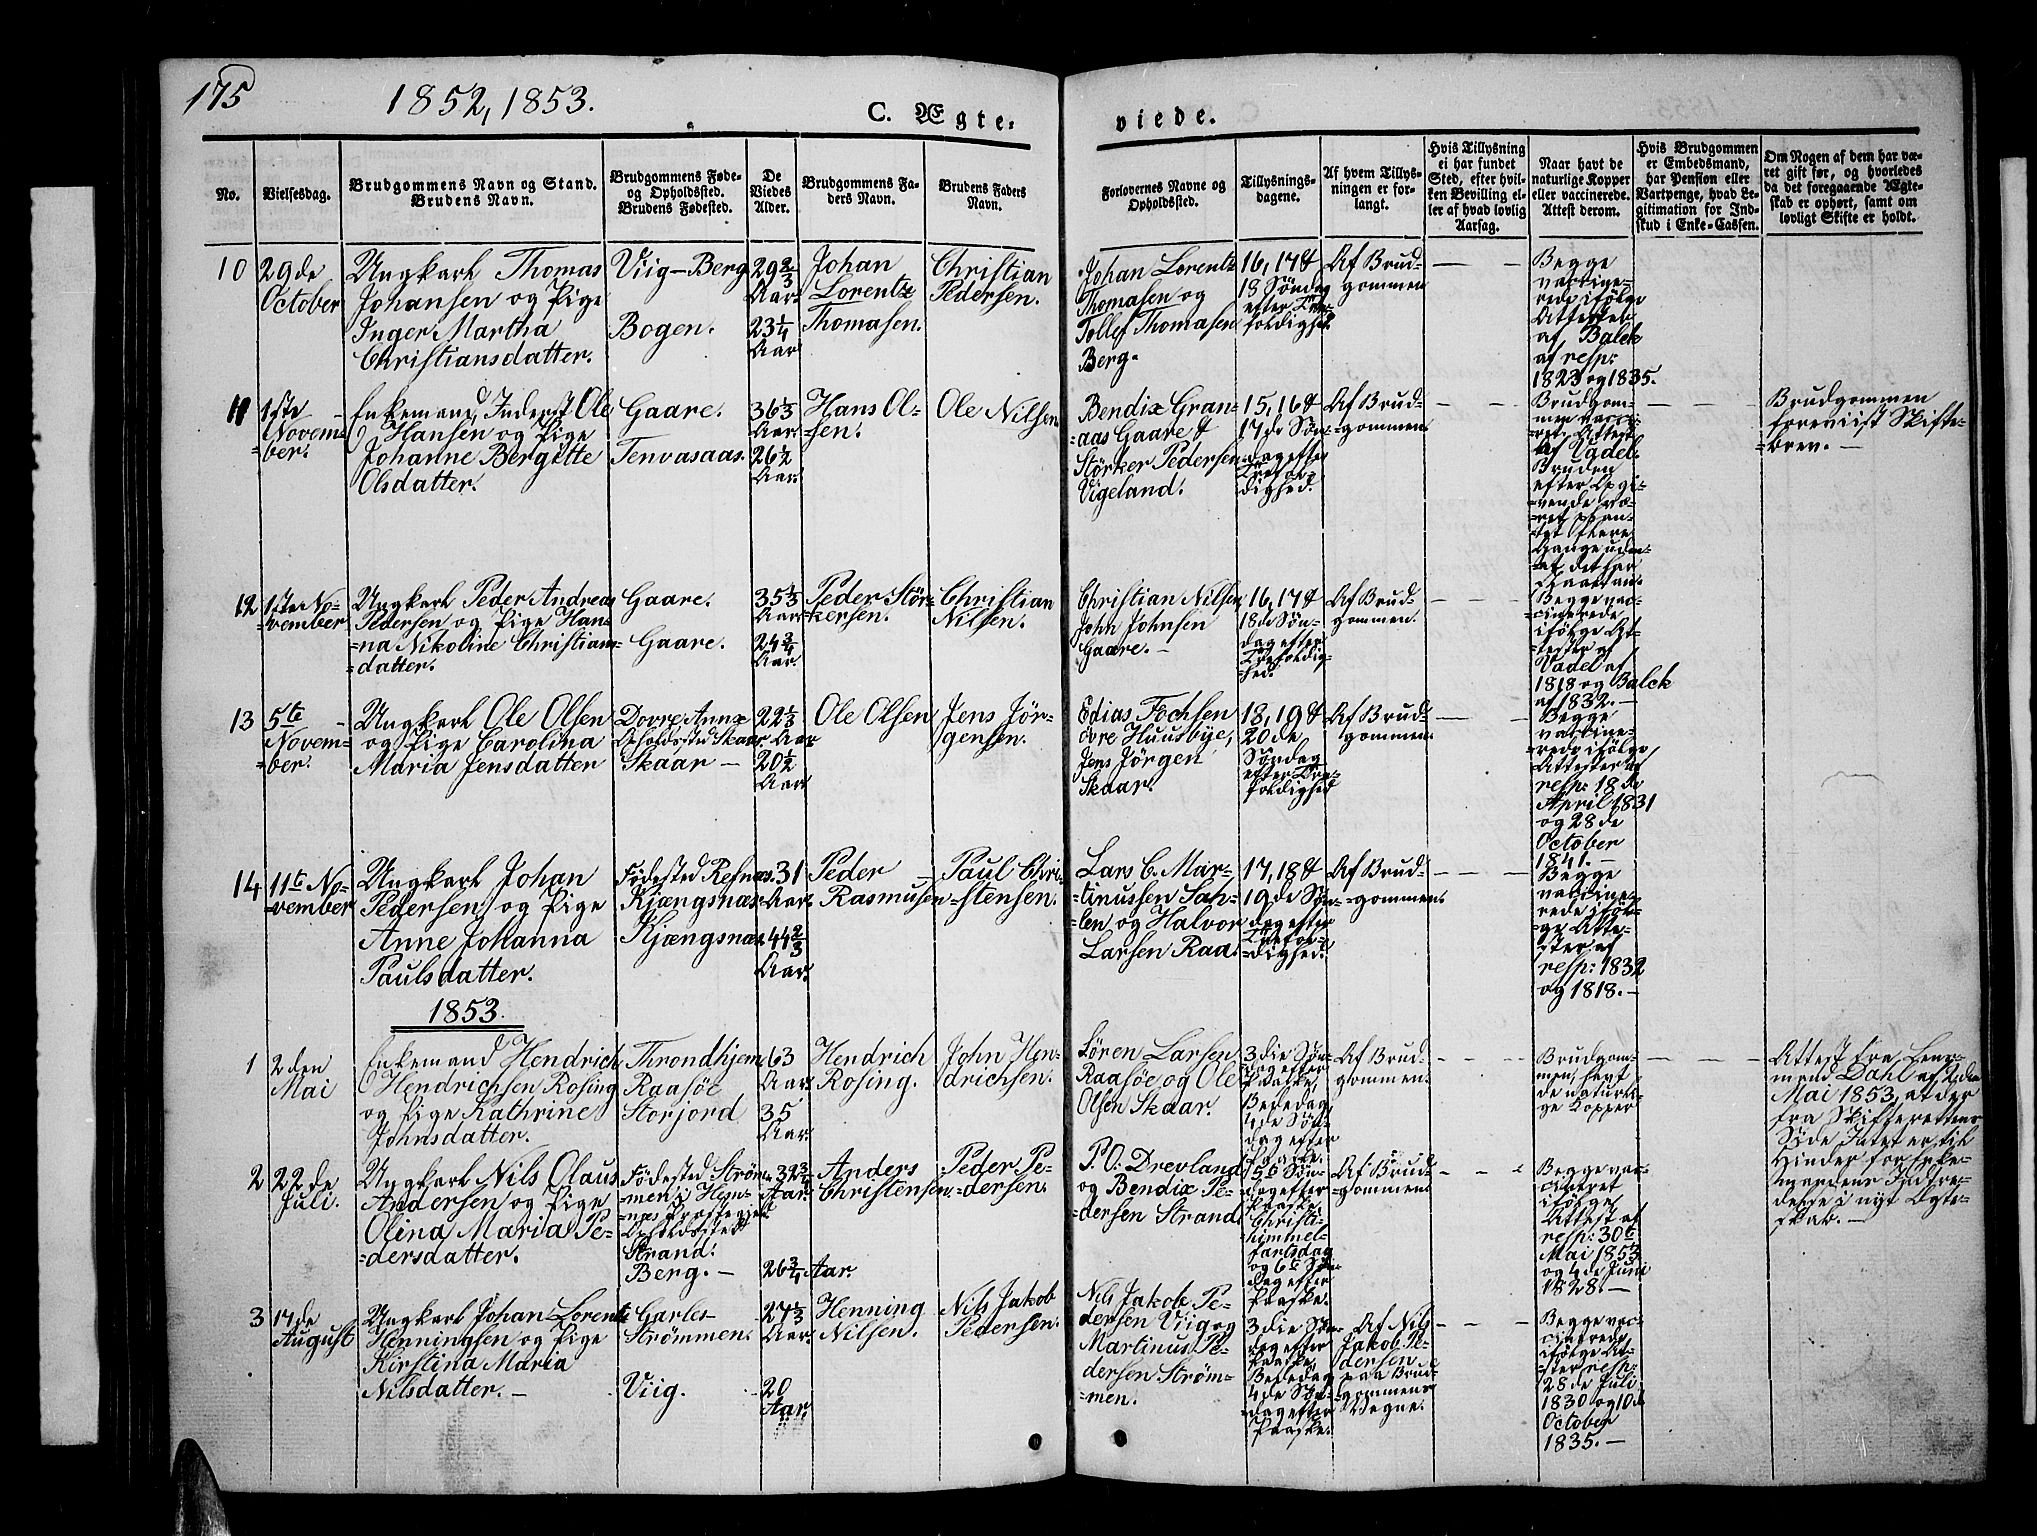 175
1852, 1853.
C. Ægte-
viede.
No.
Vielsesdag.
Brudgommens Navn og Stand.
Brudens Navn.
Brudgommens Føde-
og Opholdssted.
Brudens Fødested.
De
Viedes
Alder.
Brudgommens Fa-
ders Navn.
Brudens Faders
Navn.
Forlovernes Navne og
Opholdssted.
Tillysnings-
dagene.
Af hvem Tillys-
ningen er for-
langt.
Hvis Tillysning
ei har fundet
Sted, efter hvil-
ken Bevilling el-
ler af hvad lovlig
Aarsag.
Naar havt de
naturlige Kopper
eller vaccinerede.
Attest derom.
Hvis Brudgommen
er Embedsmand,
har Pension eller
Vartpenge, hvad Le-
gitimation for Ind-
skud i Enke-Cassen.
Om Nogen af dem har væ-
ret gift før, og hvorledes
da det foregaaende Ægte-
skab er ophørt, samt om
lovligt Skifte er holdt.
10
29de
October
Ungkarl Thomas
Johansen og Pige
Inger Martha
Christiansdatter.
Viig-Berg
Bogen.
29 2/3
Aar
23 1/4
Aar
Johan
Lorentz
Thomasen.
Christian
Pedersen.
Johan Lorentz
Thomasen og
Tollef Thomasen
Berg.
16, 17 &
18 Søndag
efter Tre-
foldighed.
Af Brud-
gommen
Begge
vaccine-
rede ifølge
Attester
af Balck
af resp:
1823 og 1835.
11
1ste
Novem-
ber.
Enkemand, Inderst Ole
Hansen og Pige
Johanne Bergitte
Olsdatter.
Gaare.
Tenvasaas.
36 1/3
Aar
26 1/2
Aar
Hans Ol-
sen.
Ole Nilsen
Bendix Gran-
aas Gaare &
Störker Pedersen
Vigeland.
15, 16 &
17de Søn-
dag efter
Trefol-
dighed.
Af Brud-
gommen
Brudgom-
men vacci-
ret. Attest
af Vadel.
Bruden
efter Opgi-
vende væ-
ret
Brudgommen
foreviist Skifte-
brev.
12
1ste No-
vember
Ungkarl Peder Andreas
Pedersen og Pige Han-
na Nikoline Christians-
datter.
Gaare.
Gaare.
35 1/3
Aar
24 3/4
Aar
Peder Stör-
kersen.
Christian
Nilsen.
Christian Nilsen,
John Johnsen
Gaare.
16, 17 &
18de Søn-
dag efter
Trefoldig-
hed.
Af Brud-
gommen.
Begge vac-
cinerede
ifølge At-
tester af
Vadel af
1818 og Balck
af 1832.
13
5te
Novem-
ber.
Ungkarl Ole Olsen
og Pige Carolina
Maria Jensdatter
Dovre Annx
Opholdssted Skaar
Skaar
22 1/3
Aar
20 1/2
Aar
Ole Olsen
Jens Jör-
gensen.
Edias Fochsen
övre Huusbye,
Jens Jörgen
Skaar.
18, 19 &
20de
Søndag
efter Tre-
foldighed
Af Brud-
gommen.
Begge
vaccine-
rede ifølge
Attester af
resp: 18de
April 1831
og 28de
October
1841.
14
11te No-
vember
Ungkarl Johan
Pedersen og Pige
Anne Johanna
Paulsdatter.
Födested Refnæs.
Kjængsnæs
Kjængsnæs
31
Aar.
44 2/3
Aar.
Peder
Rasmusen
Paul Chri-
stensen.
Lars C. Mar-
tinussen Sah-
len og Halvor
Larsen Raa.
17, 18 &
19de Søn-
dag efter
Trefol-
dighed.
Af Brud-
gommen.
Begge
vaccine-
rede iføl-
ge Atte-
ster af
resp: 1832
og 1818.
1853.
1
2den
Mai
Enkemand Hendrich
Hendrichsen Rosing
og Pige Kathrine
Johnsdatter.
Throndhjem
Raasöe
Storjord
63
Aar.
35
Aar.
Hendrich
Rosing.
John Hen-
drichsen.
Sören Larsen
Raasöe og Ole
Olsen Skaar.
3die Søn-
dag efter
Paaske,
Bededag
4de Søn-
dag efter
Paaske.
Af Brud-
gommen.
Brudgom-
men, havt
de naturli-
ge Kopper
Attest fra Lens-
mand Dahl af 2den
Mai 1853, at der
fra Skifterettens
Side Intet er til
Hinder for Enke-
mandens Indtræ-
delse i nyt Ægte-
skab.
2
22de
Juli.
Ungkarl Nils Olaus
Andersen og Pige
Olina Maria Pe-
dersdatter.
Födested Ström-
men i Hem-
næs Præstegjeld
Opholdssted
Strand.
Berg.
32 3/4
Aar.
26 3/4 Aar.
Anders
Christensen.
Peder Pe-
dersen.
P. O. Drevland
og Bendix Pe-
dersen Strand.
5te Søn-
dag efter
Paaske,
Christi-
himmel-
fartsdag
og 6te Søn-
dag efter
Paaske.
Af Brud-
gommen
Begge vac-
cineret
ifølge
Attest af
resp: 30te
Mai 1853
og 4de Juni
1828.
3
17de
August
Ungkarl Johan Lorents
Henningsen og Pige
Kirstina Maria
Nilsdatter.
Garles-
Strömmen.
Viig.
27 1/3
Aar.
20
Aar.
Henning
Nilsen.
Nils Jakob
Pedersen.
Nils Jakob Pe-
dersen Viig og
Martinus Pe-
dersen Ström-
men.
3die Søn-
dag efter
Paaske,
Bededag
4de Søn-
dag efter
Paaske.
Af Nils
Jakob Pe-
dersen
paa Brud-
gommens
Vegne.
Begge vac-
cinerede
ifølge At-
ster resp:
28de Juli
1830 og 10de
October
1835.